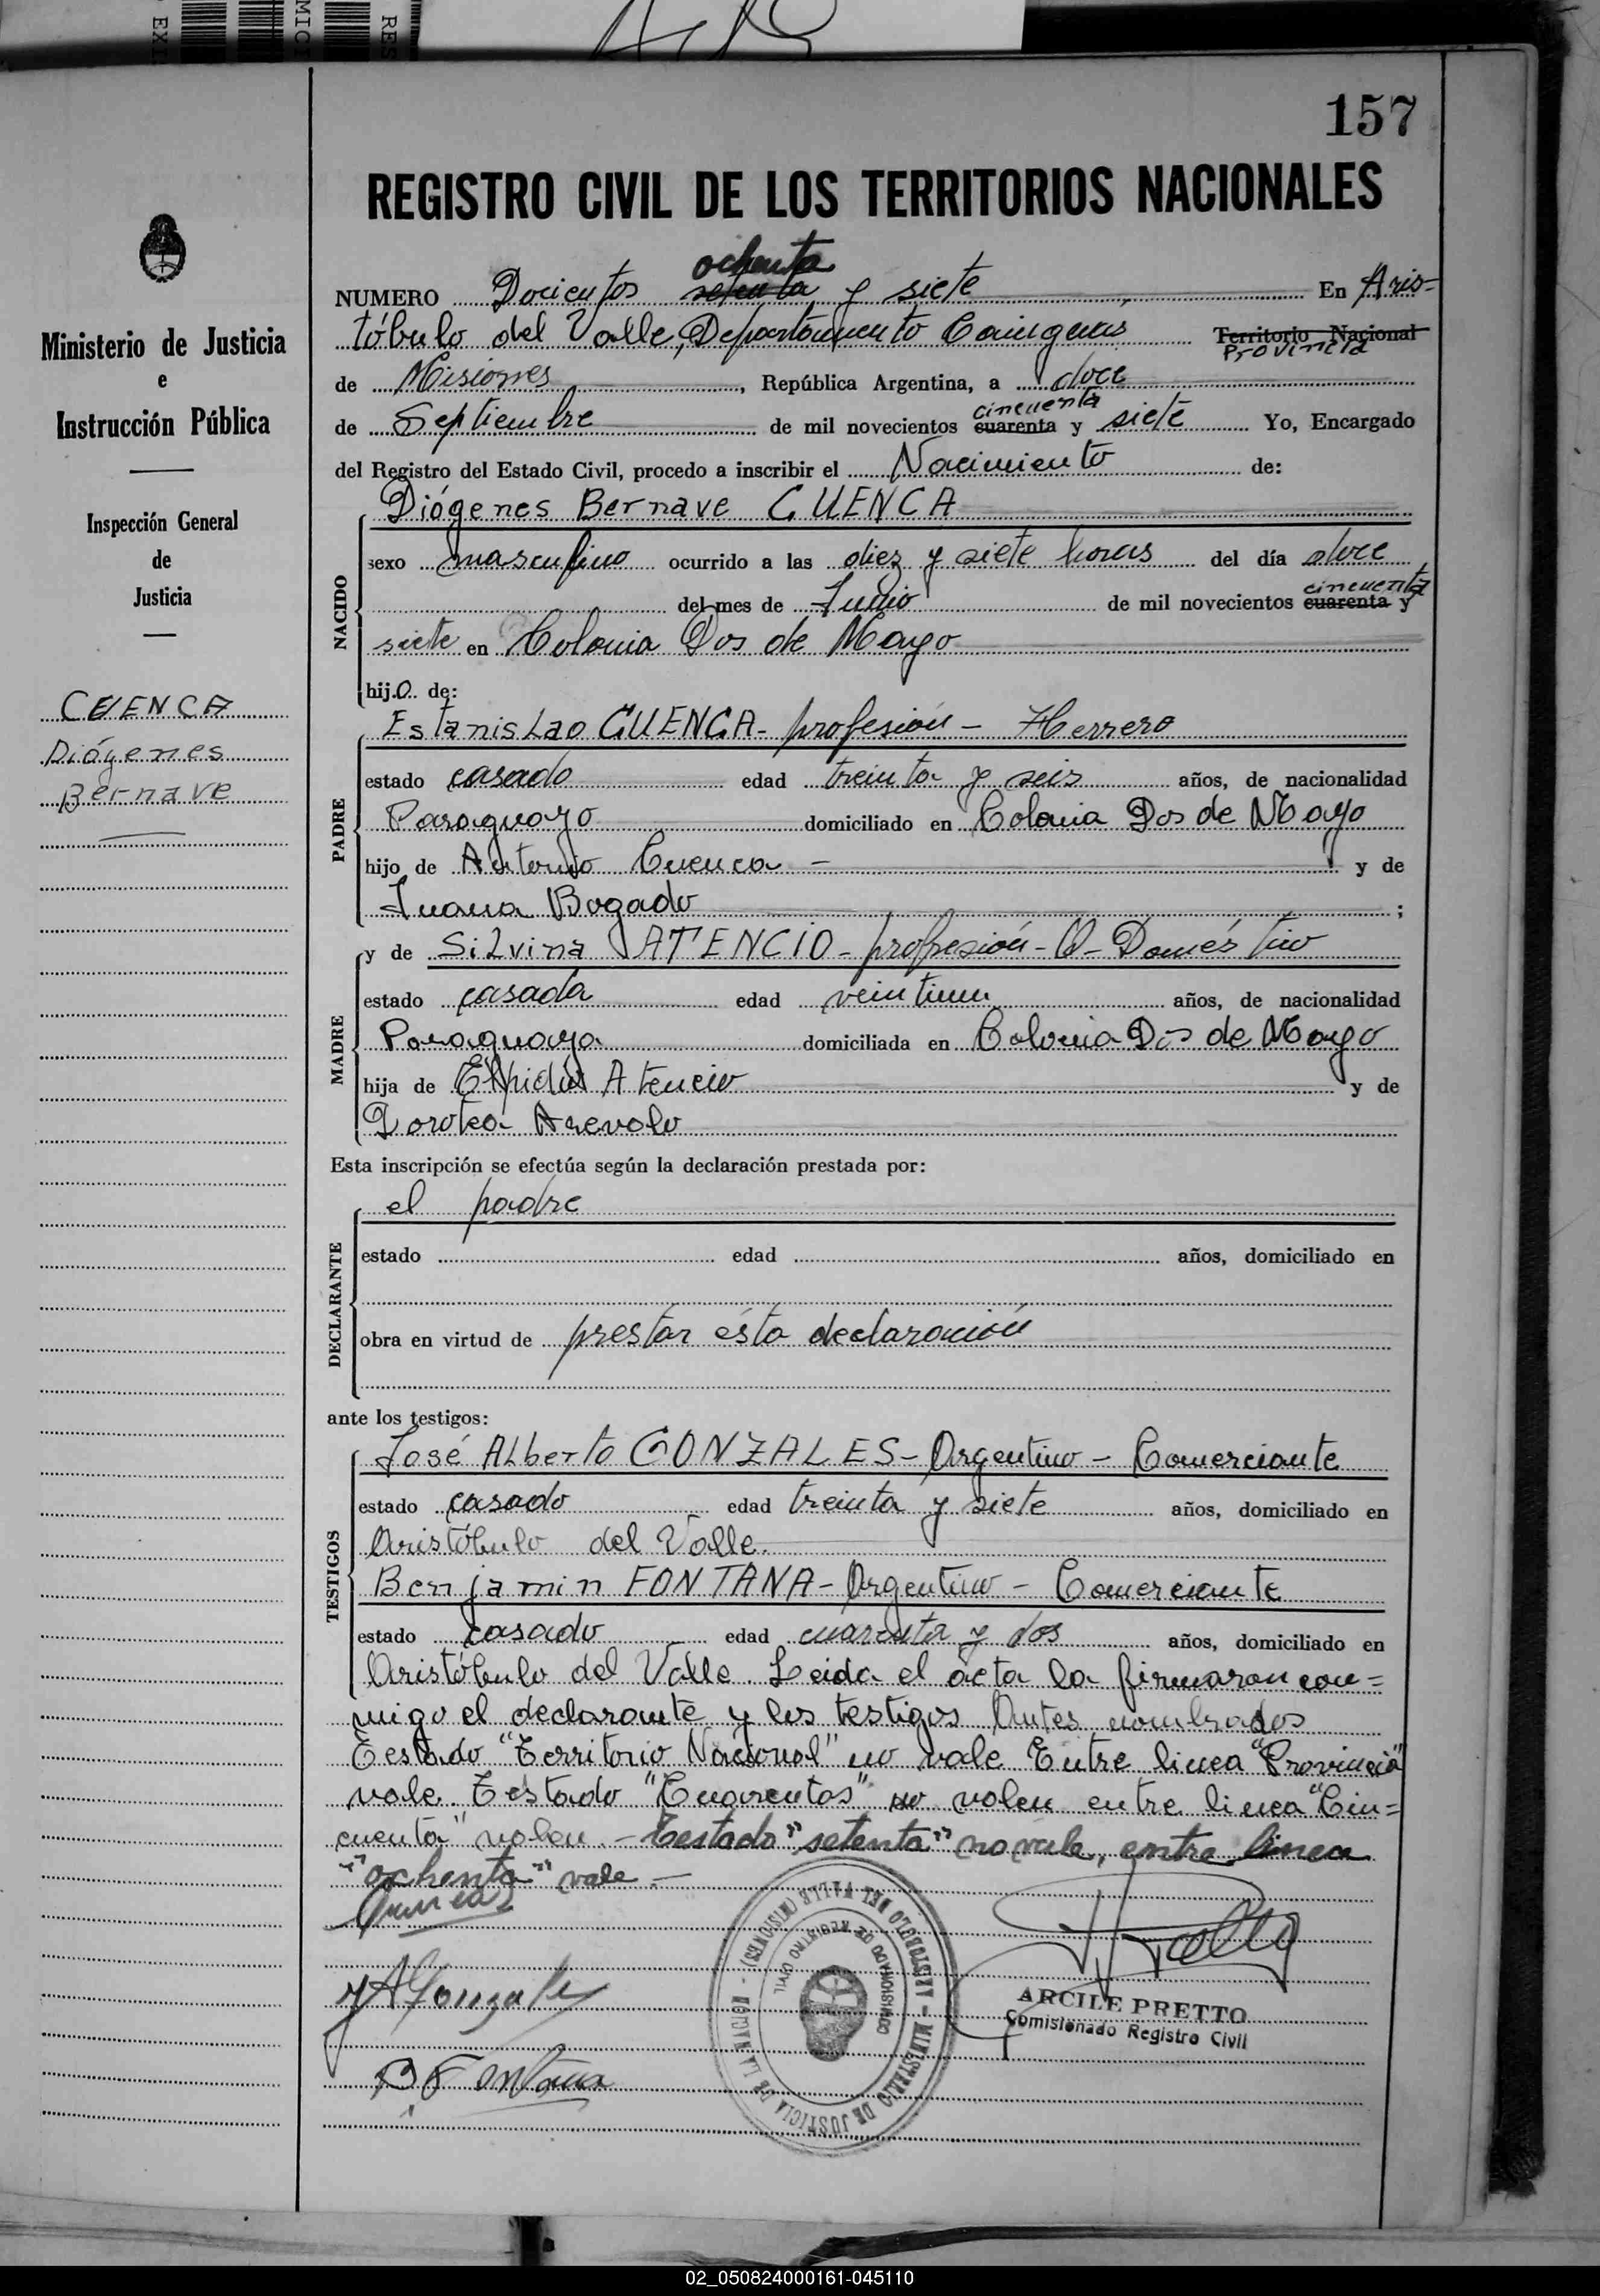 157
REGISTRO CIVIL DE LOS TERRITORIOS NACIONALES
Ministerio de Justicia
e
Instrucción Pública
Inspección General
de
Justicia
CUENCA
Diógenes
Bernave
ochenta
NUMERO Docientos setenta y siete En Aris=
tóbulo del Valle, Departamento Cainguas Territorio Nacional
Provincia
de Misiones, República Argentina, a doce
cincuenta
de Septiembre de mil novecientos cuarenta y siete Yo, Encargado
del Registro del Estado Civil, procedo a inscribir el Nacimiento de:
Diógenes Bernave CUENCA
NACIDO
sexo masculino ocurrido a las diez y siete horas del día doce
cincuenta
del mes de Junio de mil novecientos cuarenta y
siete en Colonia Dos de Mayo
hijo de:
Estanislao CUENCA - profesión - Herrero
PADRE
estado casado edad treinta y seis años, de nacionalidad
Paraguayo domiciliado en Colonia Dos de Mayo
hijo de Antonio Cuenca - y de
Juana Bogado ;
y de Silvina ATENCIO - profesión - Q - Doméstico
MADRE
estado casada edad veintiun años, de nacionalidad
Paraguaya domiciliada en Colonia Dos de Mayo
hija de Elpidio Atencio y de
Dorotea Arevalo
Esta inscripción se efectúa según la declaración prestada por:
el padre
DECLARANTE
estado edad años, domiciliado en
obra en virtud de prestar ésta declaración
ante los testigos:
José Alberto GONZALES - Argentino - Comerciante
TESTIGOS
estado casado edad treinta y siete años, domiciliado en
Aristóbulo del Valle.
Benjamin FONTANA - Argentino - Comerciante
estado casado edad cuarenta y dos años, domiciliado en
Aristóbulo del Valle. Leida el acta la firmaron con=
migo el declarante y los testigos Antes nombrados
Testado "Territorio Nacional" no vale Entre linea "Provincia"
vale. Testado "Cuarentas" no valen entre linea "Cin=
cuenta" valen. - Testado "setenta" no vale, entre linea
"ochenta" vale. -
JAGonzales
B Fontana
MINISTERIO DE JUSTICIA DE LA NACION - ARISTOBULO DEL VALLE (MISIONES)
COMISIONADO DE REGISTRO CIVIL
ARCILE PRETTO
Comisionado Registro Civil
02_050824000161-045110